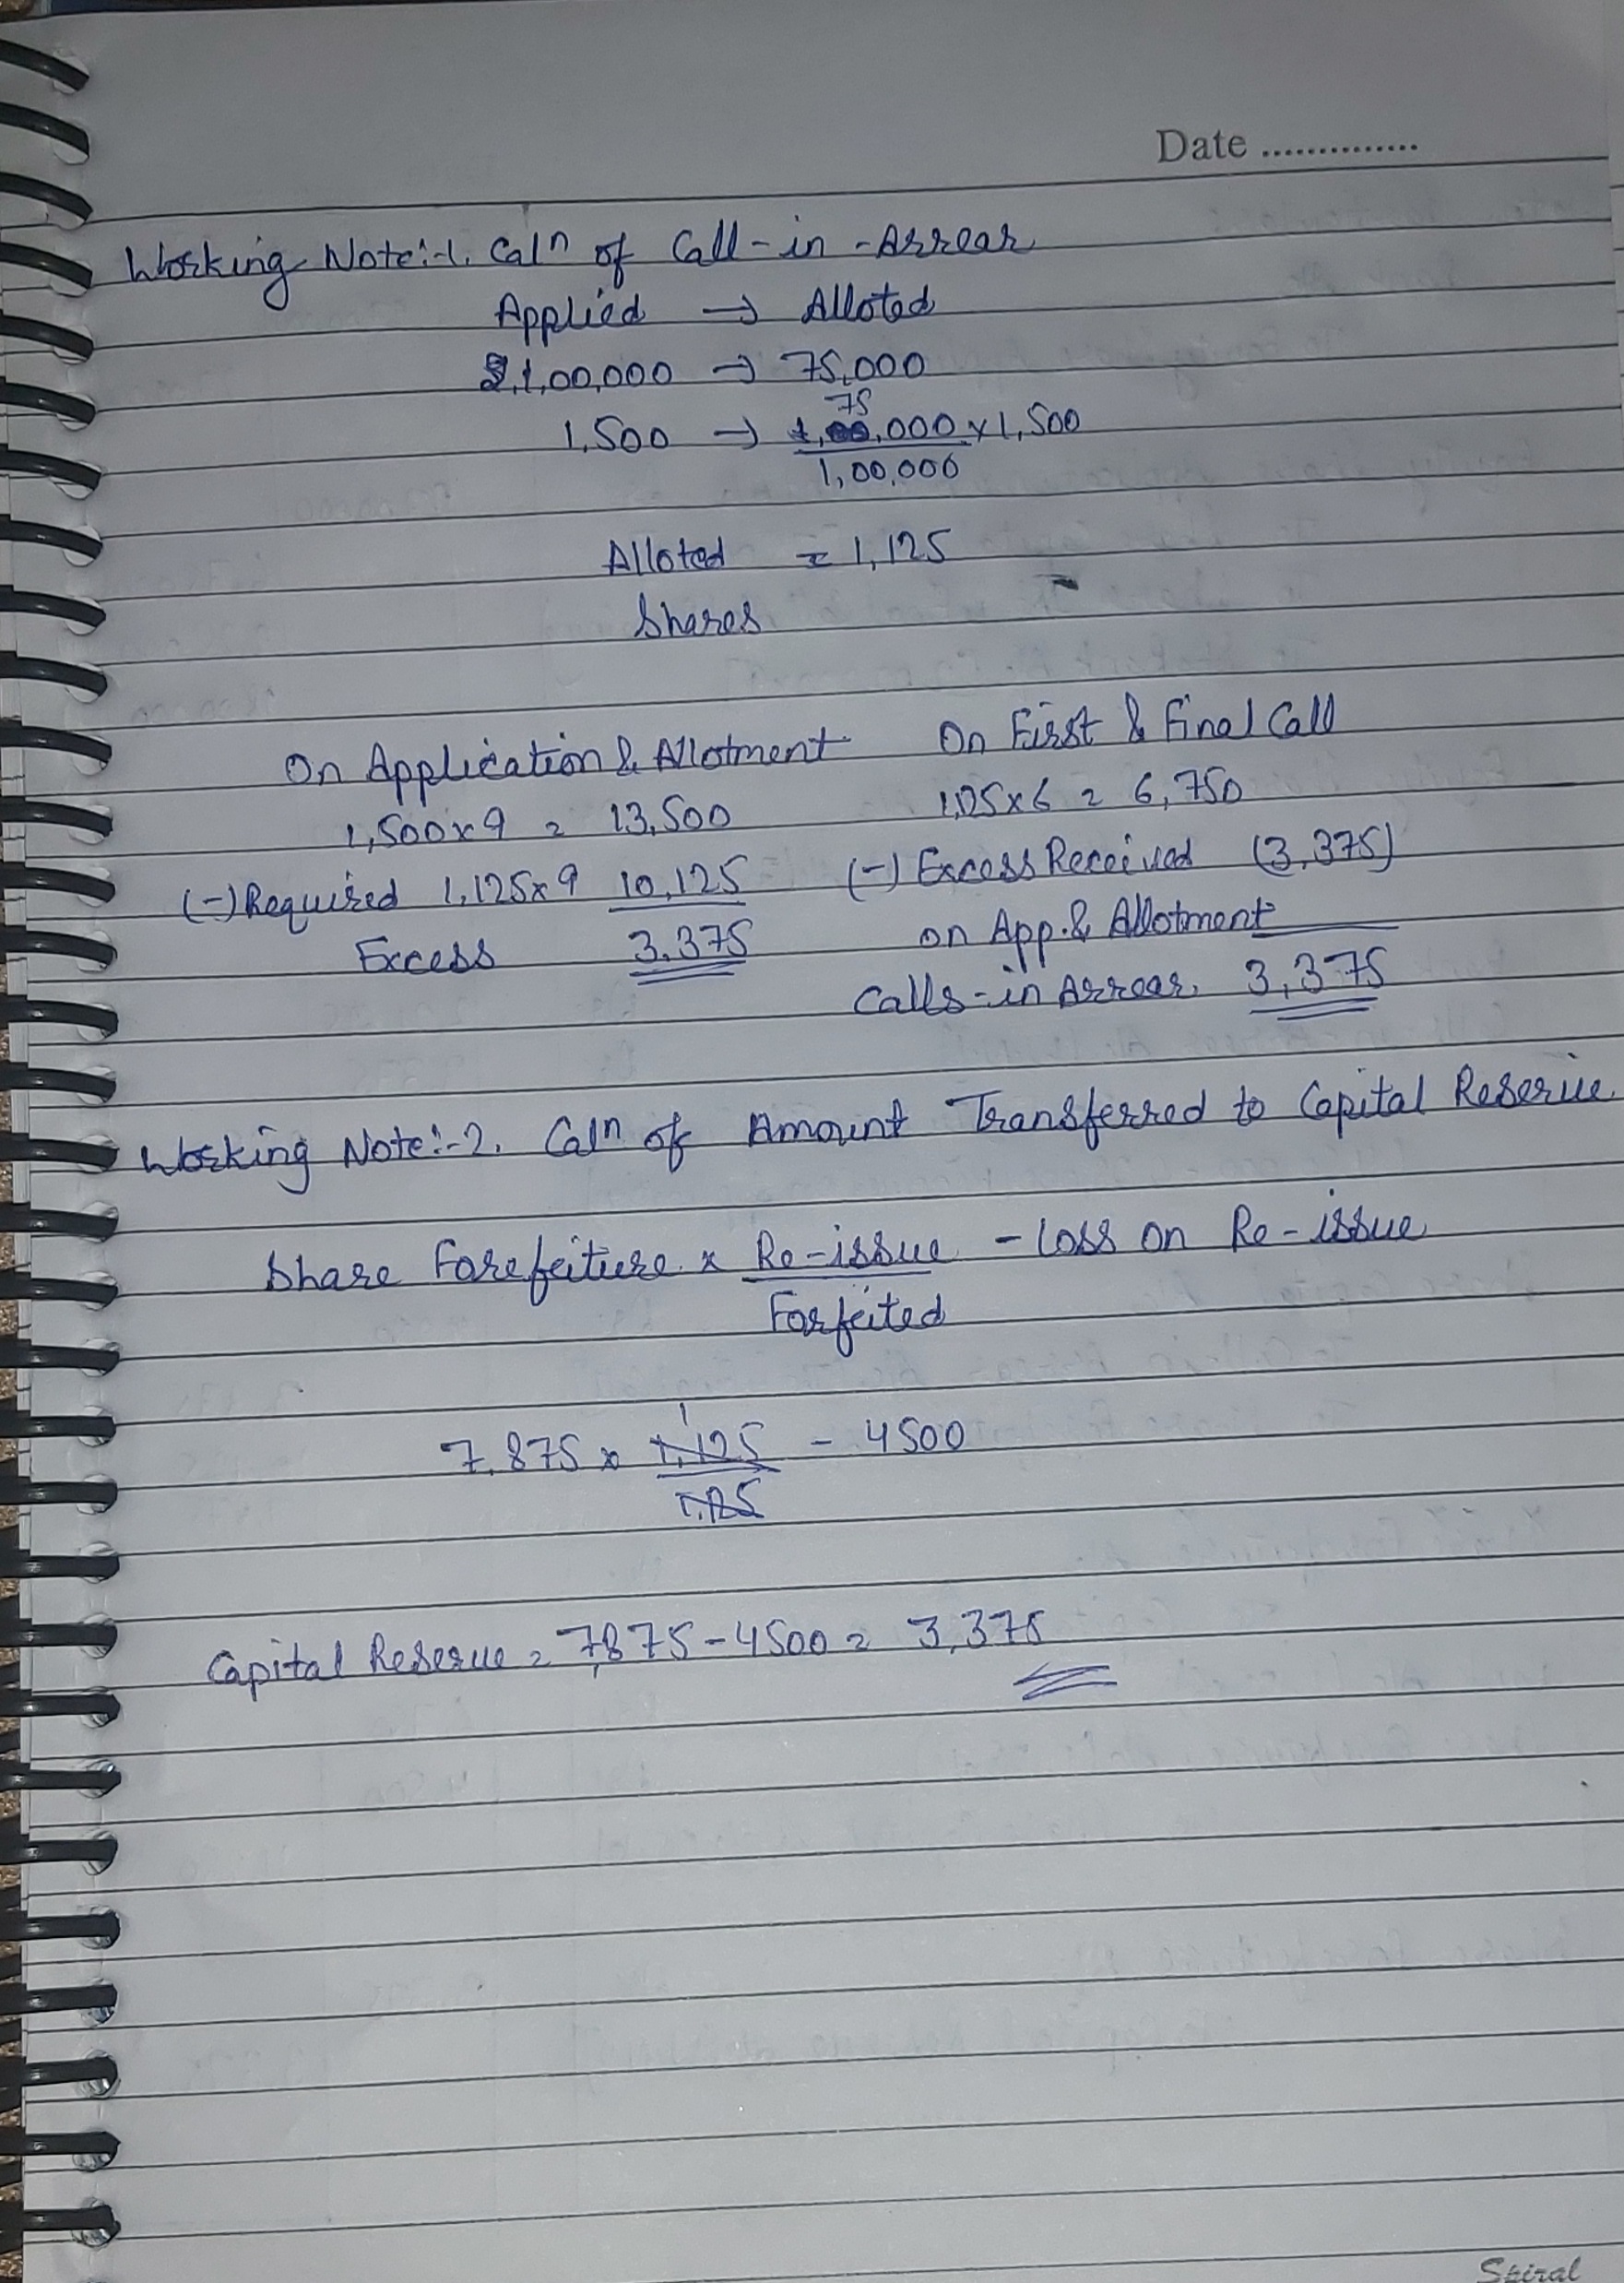 Date ..............
Working Note:-1. Calⁿ of Call-in-Arrear
Applied → Alloted
1,00,000 → 75,000
1,500 → 75,000 x 1,500
1,00,000
Alloted = 1,125
Shares
On Application & Allotment On First & Final Call
1,500x9 = 13,500 1,125x6 = 6,750
(-) Required 1,125x9 10,125 (-) Excess Received (3,375)
Excess 3,375 on App. & Allotment
Calls-in Arrear. 3,375
Working Note:-2. Calⁿ of Amount Transferred to Capital Reserve
Share Forefeiture x Re-issue - Loss on Re-issue
Forfeited
1
7,875 x 1,125 - 4500
1,125
Capital Reserve = 7,875-4500 = 3,375
Spiral